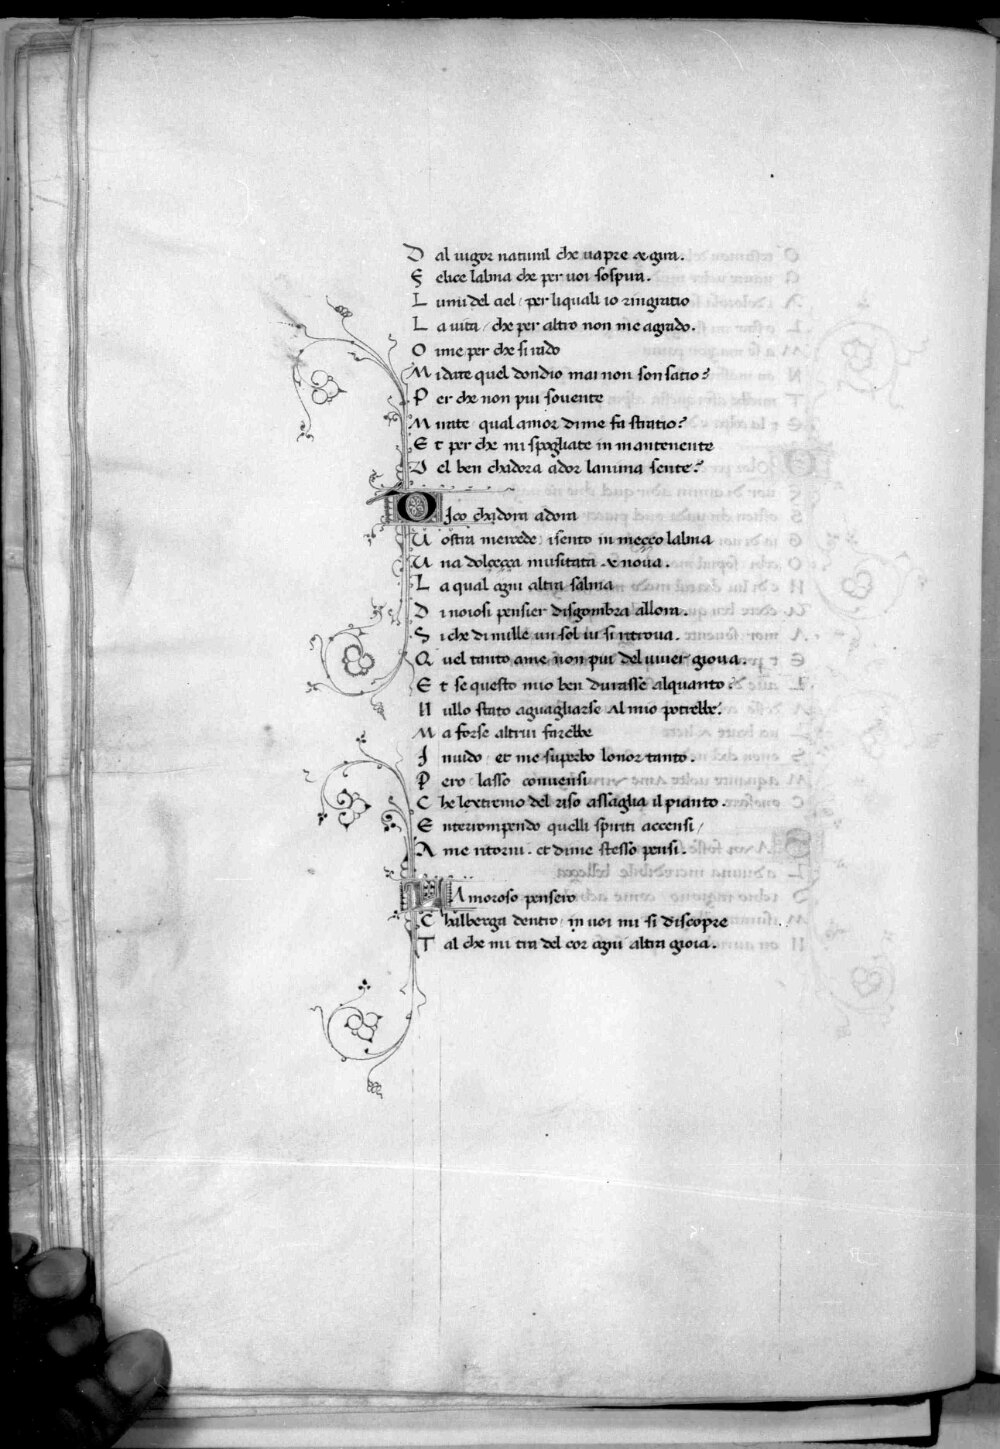 D al uigor natural che uapre & gira.
F elice lalma che per uoi sospira.
L umi del ciel / per liquali io ringratio
L a uita / che per altro non me agrado.
O ime per che si rado
M i date quel dondio mai non son satio?
P er che non piu souente
M irate qual amor di me fa stratio?
E t per che mi spogliate in mantenente
D el ben chadora ador lanima sente?
D ico chadora adora
U ostra mercede isento in mecco lalma
U na dolcecça inusitata & noua.
L a qual ogni altra salma
D i noiosi pensier disgombra allora.
S i che di mille un sol iui si ritroua.
Q uel tanto ame non piu del uiuer gioua.
E t se questo mio ben durasse alquanto?
N ullo stato aguagliarse al mio potrebbe.
M a forse altrui farebbe
I nuido et me superbo lonor tanto.
P ero lasso conuensi
C he lextremo del riso assaglia il pianto.
E nterrompendo quelli spirti accensi /
A me ritorni. et di me stesso pensi.
L Amoroso pensero
C halberga dentro in uoi mi si discopre
T al che mi tra del cor ogni altra gioia.